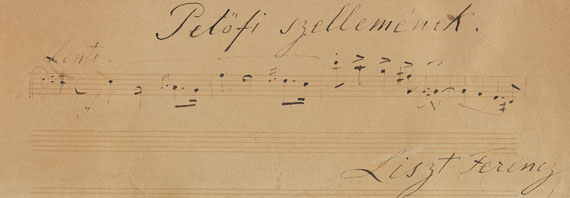 Petőfi szellemének.
Lento.
Liszt Ferencz